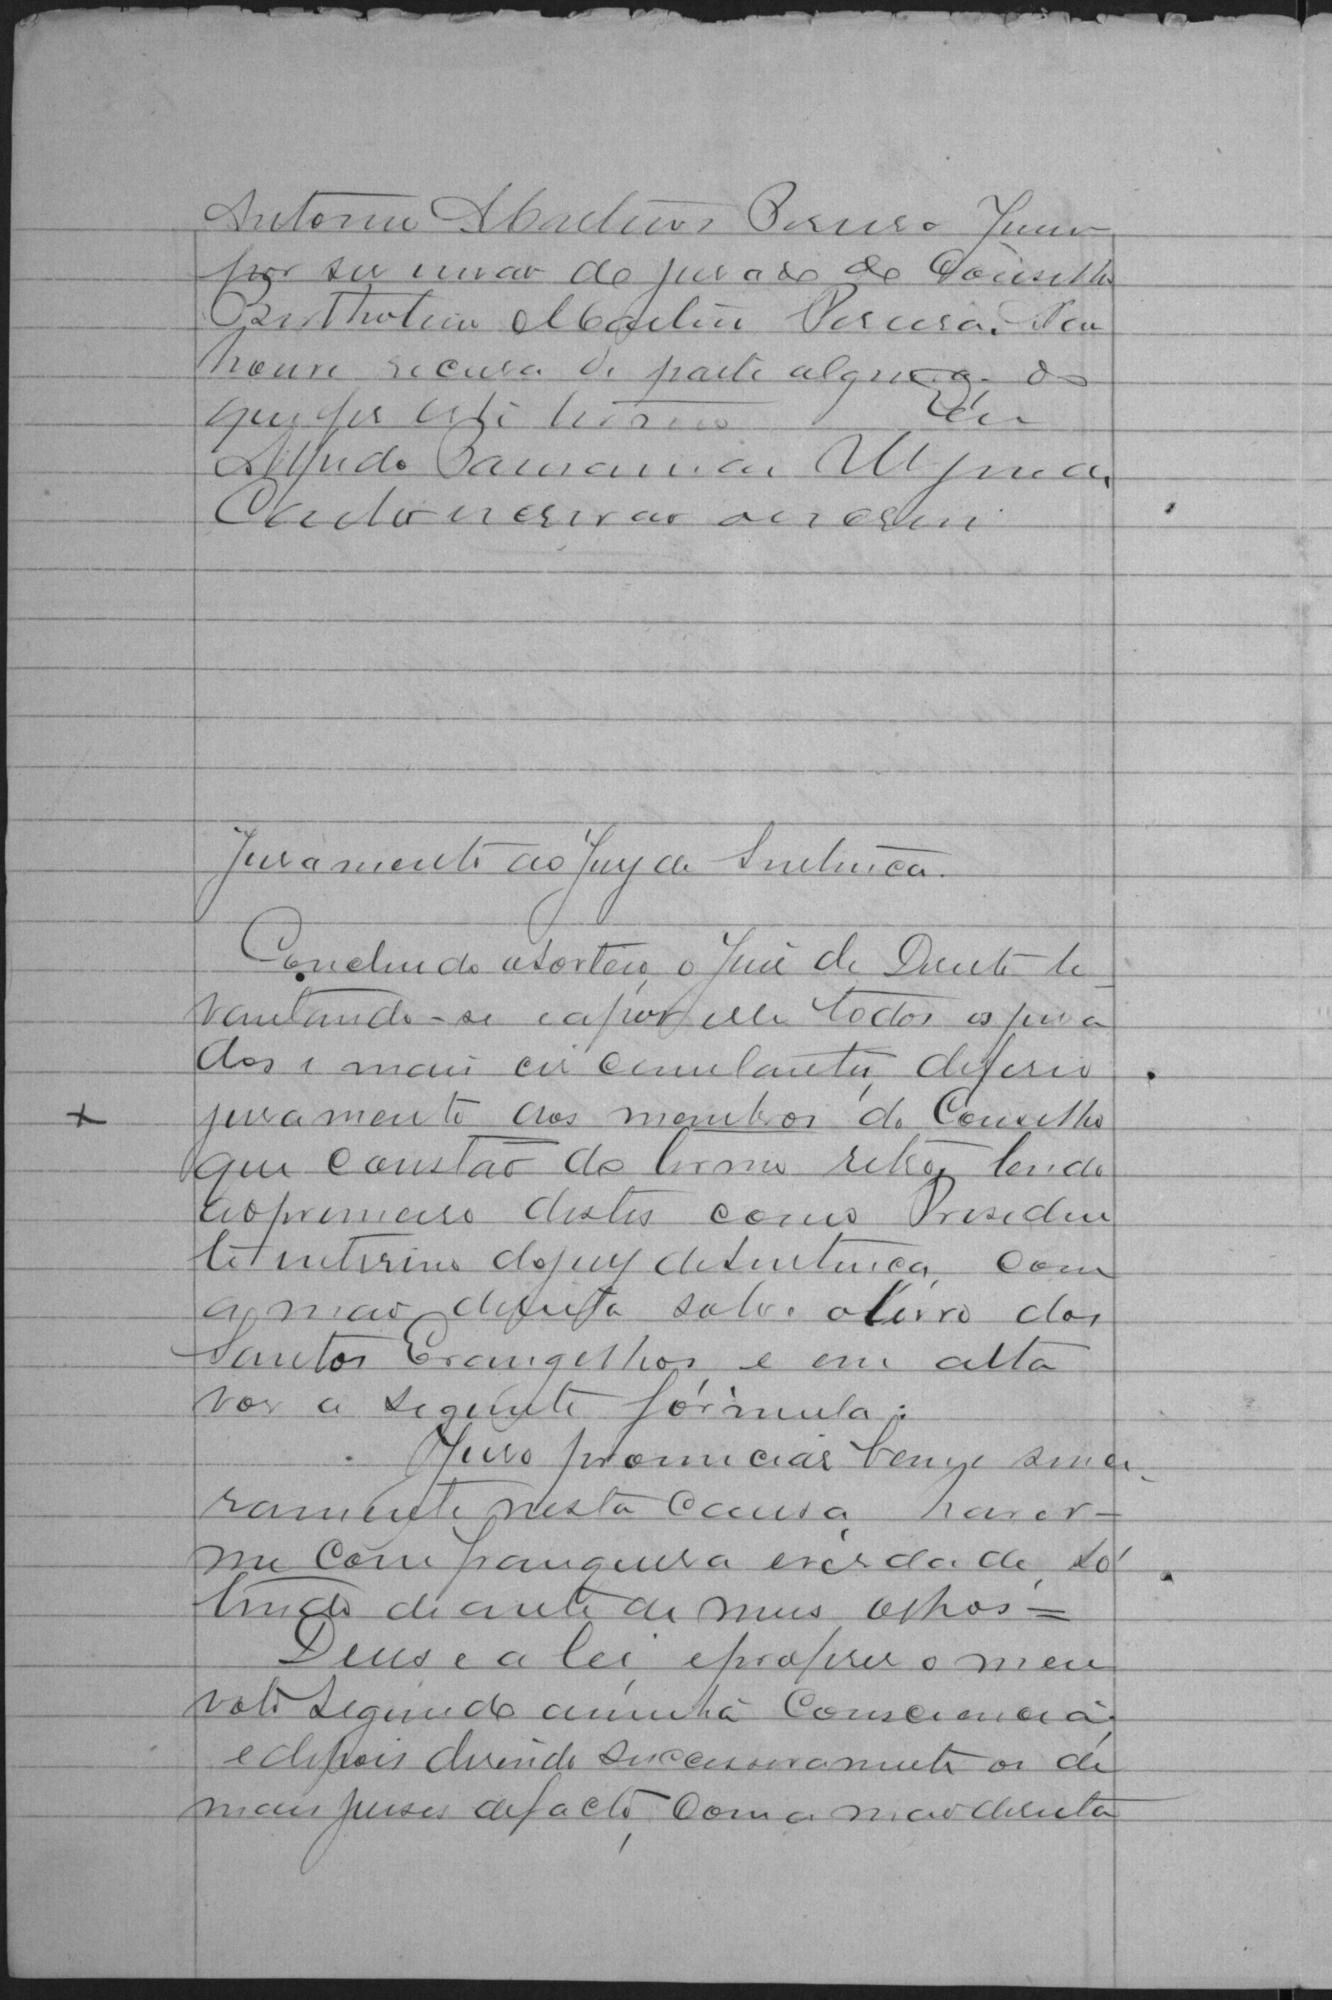 Antonio Martins Pereira Junior
por ser irmão do jurado do Conselho
Bertholino Martins Pereira. Não
houve recusa de parte alguma. do
que fiz este termo Eu
Alfredo
escrivão o escrevi
Juramento ao Jury de Sentença.
Concluido o sorteio, o Juiz de Direito le
vantando-se e apoz elle todos os jura
dos e mais circumstantes, deferio
juramento aos membros do Conselho
que constão do termo retro, lendo
ao primeiro destes como Presiden
te interino do jury de Sentença, com
a mão direita sobre o livro dos
Santos Evangelhos e em alta
voz a seguinte fórmula:
Juro pronunciar bem e since
ramente nesta causa, haver-
me com franqueza e verdade, só
tendo diante de meus olhos =
Deus e a lei, e proferir o meu
voto segundo a minha Consciencia;
e depois disendo successivamente os de
mais juises de facto, com a mão direita